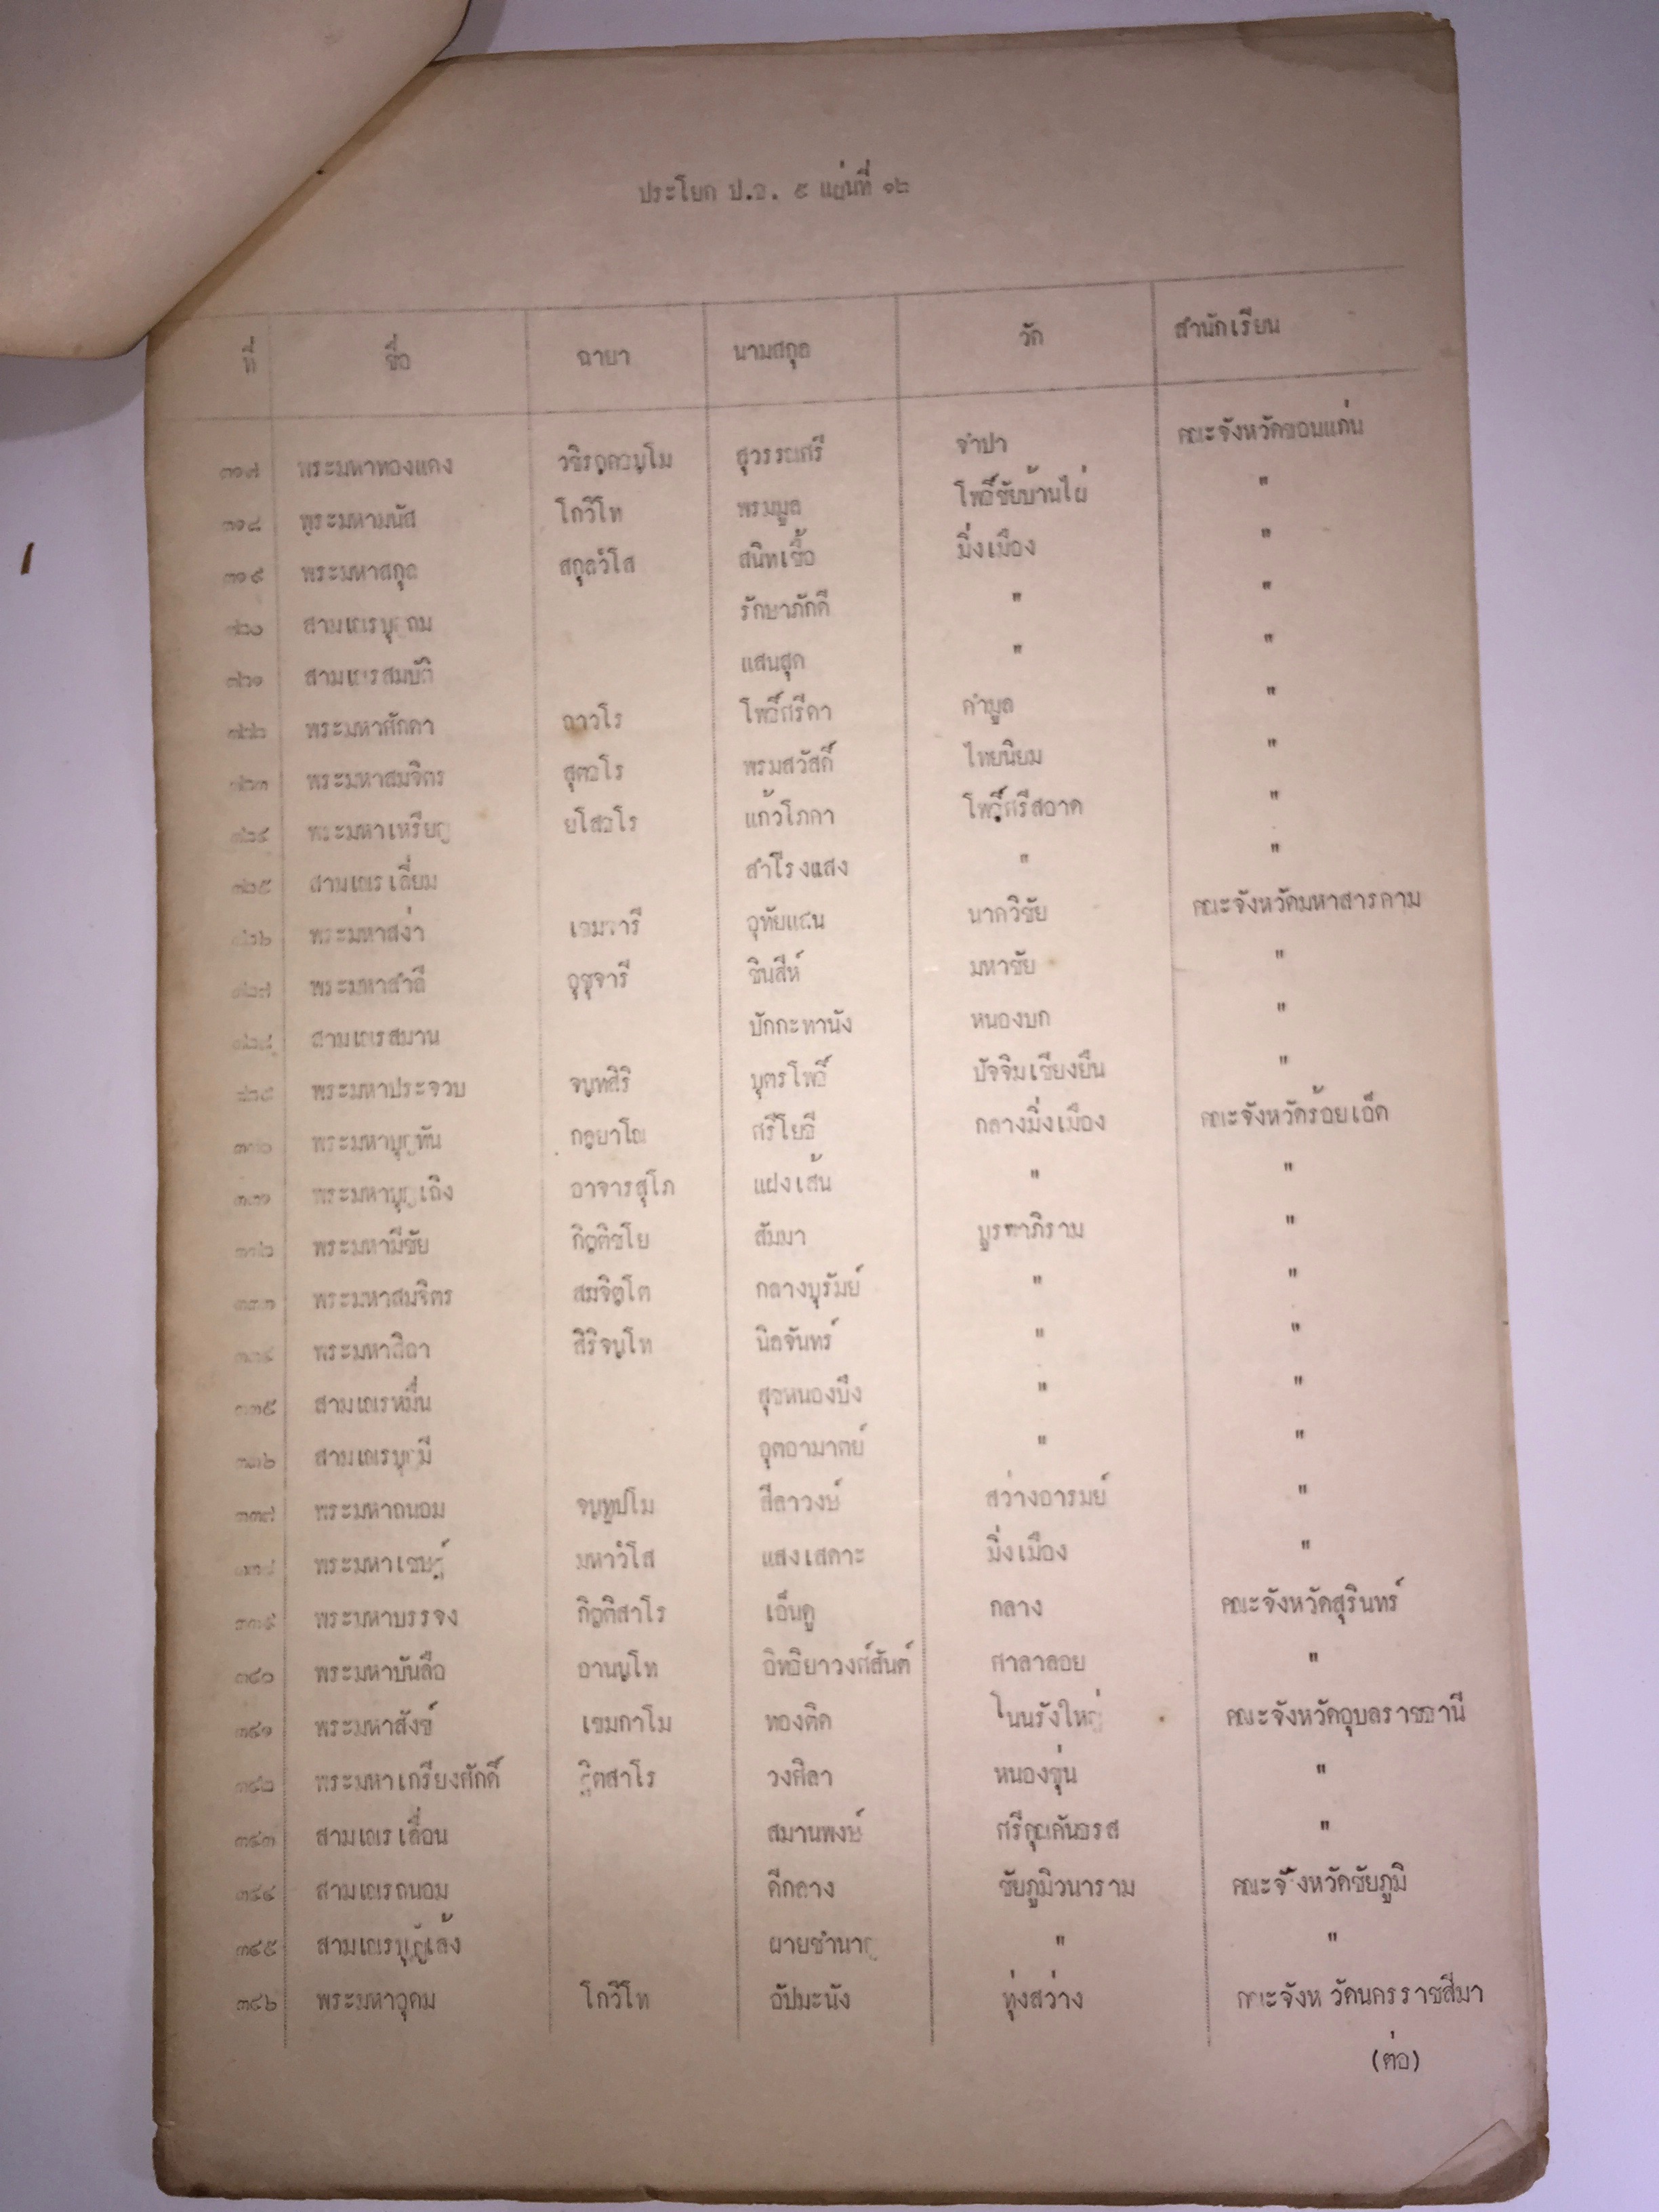 ประโยค ป.ธ. ๙ แผ่นที่ ๑๒
ที่ ชื่อ ฉายา นามสกุล วัด สำนักเรียน
๓๑๗ พระมหาทองแดง สุวรรณศรี จำปา คณะจังหวัดขอนแก่น
๓๑๘ พระมหามนัส โกวิโท พรมมูล โพธิ์ชัยบ้านไผ่ "
๓๑๙ พระมหาสกุล สกุลวํโส สนิทเชื้อ มิ่งเมือง "
๓๒๐ สามเณรบุญถม รักษาภักดี " "
๓๒๑ สามเณรสมบัติ แสนสุด " "
๓๒๒ พระมหาศักดา ถาวโร โพธิ์ศรีดา คำมูล "
๓๒๓ พระมหาสมจิตร สุตธโร พรมสวัสดิ์ ไทยนิยม "
๓๒๔ พระมหาเหรียญ ยโสธโร แก้วโภคา โพธิ์ศรีสอาด "
๓๒๕ สามเณรเลี่ยม สำโรงแสง " "
๓๒๖ พระมหาสง่า เขมจารี อุทัยแสน นาควิชัย คณะจังหวัดมหาสารคาม
๓๒๗ พระมหาสำลี อุชุจารี ชินสีห์ มหาชัย "
๓๒๘ สามเณรสมาน ปักกะทานัง หนองบก "
๓๒๙ พระมหาประจวบ จนฺทสิริ บุตรโพธิ์ ปัจจิมเชียงยืน "
๓๓๐ พระมหาบุญทัน กลฺยาโณ ศรีโยธี กลางมิ่งเมือง คณะจังหวัดร้อยเอ็ด
๓๓๑ พระมหาบุญเถิง อาจารสุโภ แฝงเส้น " "
๓๓๒ พระมหามีชัย กิตฺติชโย สัมมา บูรพาภิราม "
๓๓๓ พระมหาสมจิตร สมจิตฺโต กลางบุรัมย์ " "
๓๓๔ พระมหาสีดา สิริจนฺโท นิลจันทร์ " "
๓๓๕ สามเณรหมื่น สุขหนองบึง " "
๓๓๖ สามเณรบุญมี อุตอามาตย์ " "
๓๓๗ พระมหาถนอม จนฺทูปโม สีลาวงษ์ สว่างอารมย์ "
๓๓๘ พระมหาเชษฐ์ มหาวํโส แสงเสดาะ มิ่งเมือง "
๓๓๙ พระมหาบรรจง กิตฺติสาโร เอ็นดู กลาง คณะจังหวัดสุรินทร์
๓๔๐ พระมหาบันลือ อานนฺโท อิทธิยาวงศ์สันต์ ศาลาลอย "
๓๔๑ พระมหาสังข์ เขมกาโม ทองติด โนนรังใหญ่ คณะจังหวัดอุบลราชธานี
๓๔๒ พระมหาเกรียงศักดิ์ ฐิตสาโร วงศิลา หนองขุ่น "
๓๔๓ สามเณรเลื่อน สมานพงษ์ ศรีคุณคันธรส "
๓๔๔ สามเณรถนอม ดีกลาง ชัยภูมิวนาราม คณะจังหวัดชัยภูมิ
๓๔๕ สามเณรบุญเส้ง ผายชำนาญ " "
๓๔๖ พระมหาอุดม โกวิโท อัปมะนัง ทุ่งสว่าง คณะจังหวัดนครราชสีมา
(ต่อ)